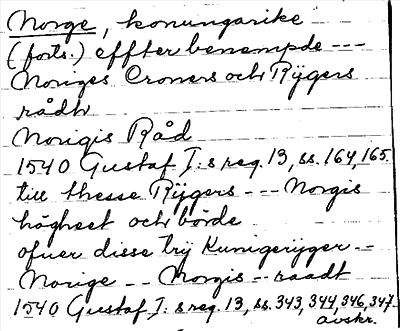 Norge, konungarike
(forts.) effter benempde ---
Noriges Croners och Rijgers
rådh
Norigis Råd
1540 Gustaf I:s reg. 13, ss. 164, 165.
till thesse Rijgers --- Norgis
högheet och börde
ofuer disse trij Kunigerijger --
Norige -- Norgis -- raadt
1540 Gustaf I:s reg. 13, ss. 343, 344, 346, 347.
avskr.